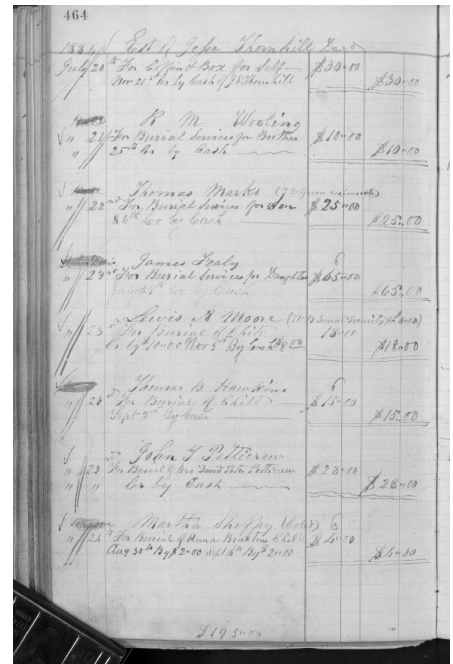 464
1884 Est of Jesse Thornhill Decd
July 20th For Coffin & Box for Self $30.00
Nov 21st Cr by Cash of Thornhill $30.00
R M Wooling
" 21 For Burial Services for Brother $10.00
" 25th Cr by Cash $10.00
Thomas Marks
" 22nd For Burial Services for Son $25.00
Cr by Cash $25.00
James Fealy
" 23rd For Burial Services for Daughter $65.00
Cr by Cash $65.00
Lewis A Moore
" 23 For Burial of Child 18.00
Cr by 10.00 Nov 3rd By Cash $8.00 $18.00
Thomas B Hawkins
" 23 For Burial of Child $15.00
Sept 2nd By Cash $15.00
John T Petticrew
" 23 For Burial of David Petticrew $28.00
" " Cr by Cash $28.00
Martha Sheppy (Cold)
" 24th For Burial of Anna Child $4.00
Aug 30th By $2.00 Sept 6th By 2.00 $4.00
$195.00